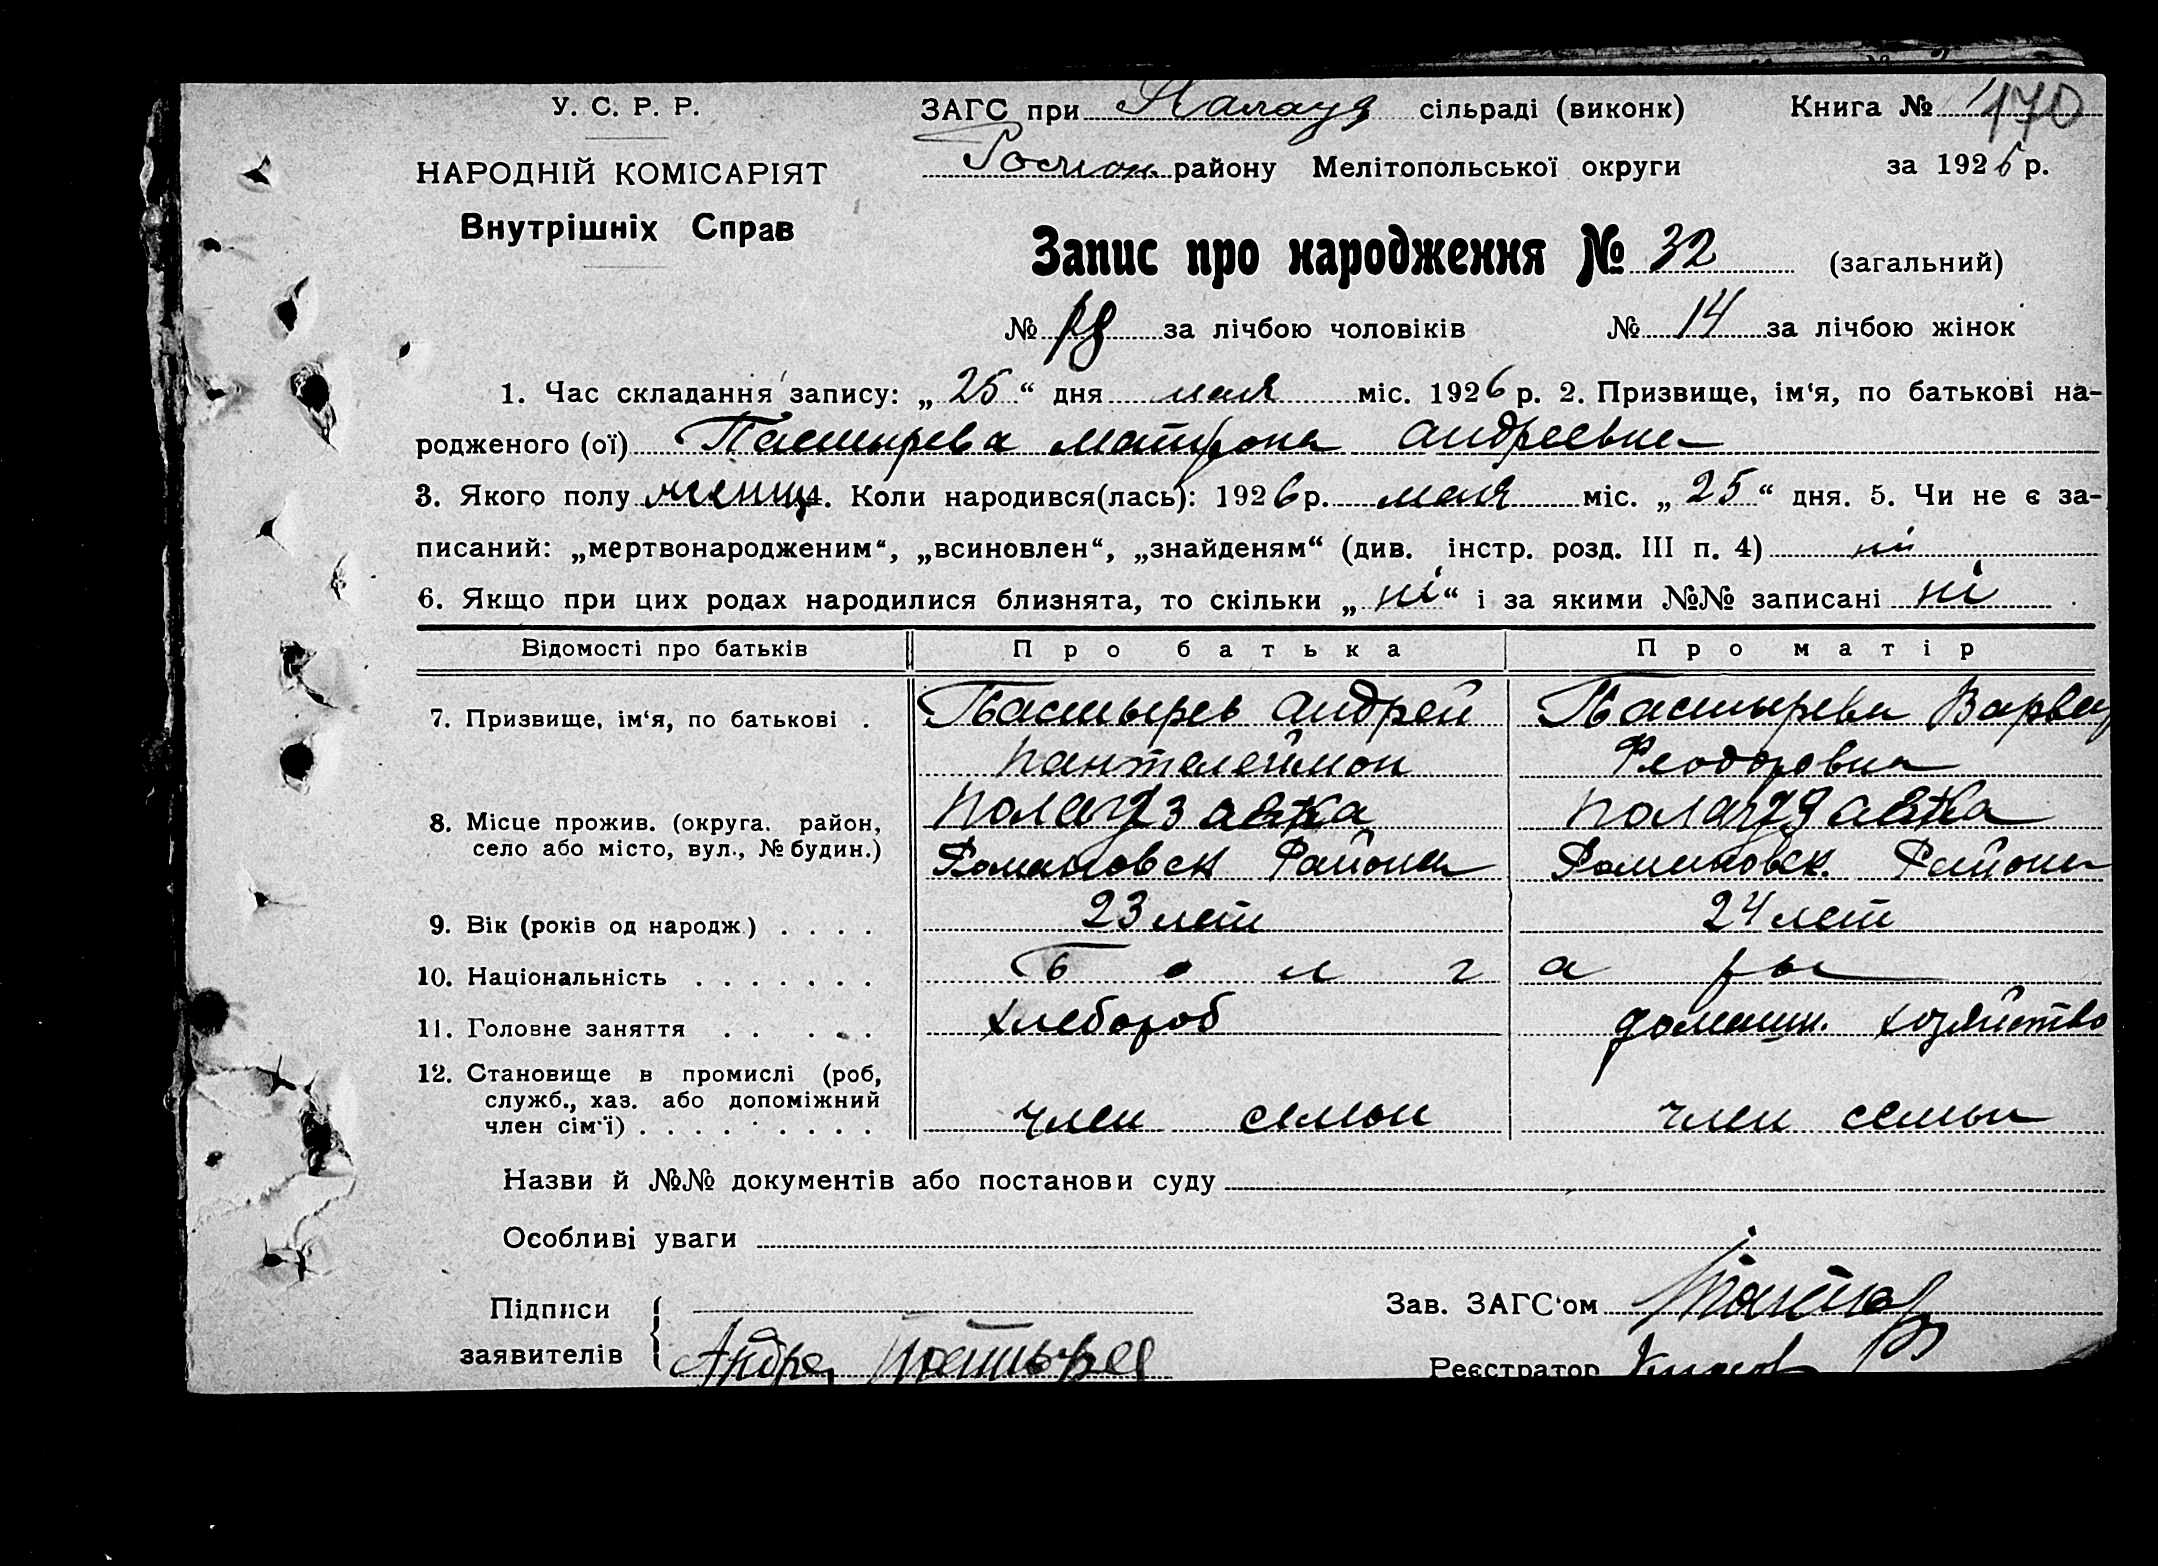 У. С. Р. Р.
НАРОДНІЙ КОМІСАРІЯТ
Внутрішніх Справ
ЗАГС при сільраді (виконк)
району Мелітопольської округи
Книга № 170
за 1926 р.
Запис про народження № 32 (загальний)
№ 18 за лічбою чоловіків № 14 за лічбою жінок
1. Час складання запису: „ 25 “ дня мая міс. 1926 р. 2. Призвище, ім‘я, по батькові на-
родженого (ої) Пастырева Матрона Андреевна
3. Якого полу женщ 4. Коли народився(лась): 1926 р. мая міс. „ 25 “ дня. 5. Чи не є за-
писаний: „мертвонародженим“, „всиновлен“, „знайденям“ (див. інстр. розд. III п. 4) ні
6. Якщо при цих родах народилися близнята, то скільки „ ні “ і за якими №№ записані ні
Відомості про батьків Про батька Про матір
7. Призвище, ім‘я, по батькові . Пастырев Андрей Пастырева Варвар
Пантелеймон Феодоровна
8. Місце прожив. (округа. район,
село або місто, вул., № будин.)
Романовск Района Романовск. Района
9. Вік (років од народж.) . . . . 23 лет 24 лет
10. Національність . . . . . . . Болгары
11. Головне заняття . . . . . хлебороб домашн. хозяйство
12. Становище в промислі (роб,
служб., хаз. або допоміжний
член сім‘ї) . . . . . . . . . член семьи член семьи
Назви й №№ документів або постанови суду
Особливі уваги
Підписи
заявителів Андре Пастырев
Зав. ЗАГС‘ом
Реєстратор